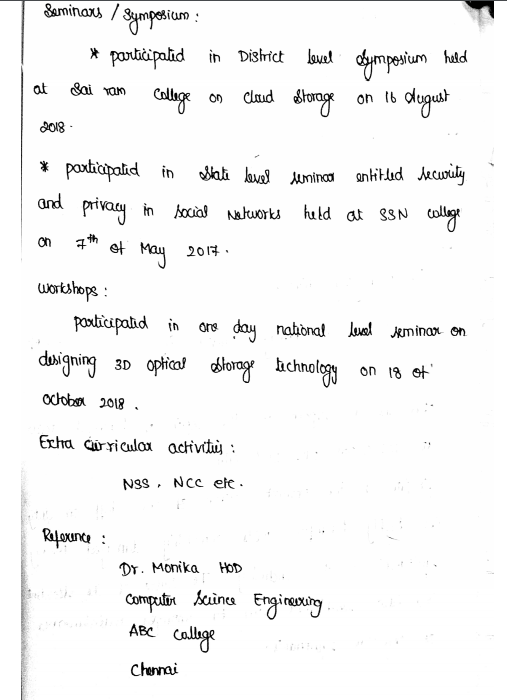 Seminars / Symposium :
* participated in District level Symposium held
at Sai ram College on Cloud Storage on 16 August
2018.
* participated in State level seminar entitled security
and privacy in Social Networks held at SSN college
on 7th of May 2017.
workshops :
participated in one day national level seminar on
designing 3D optical Storage technology on 18 of
October 2018.
Extra curricular activities :
NSS, NCC etc.
Reference :
Dr. Monika HOD
Computer Science Engineering
ABC College
Chennai